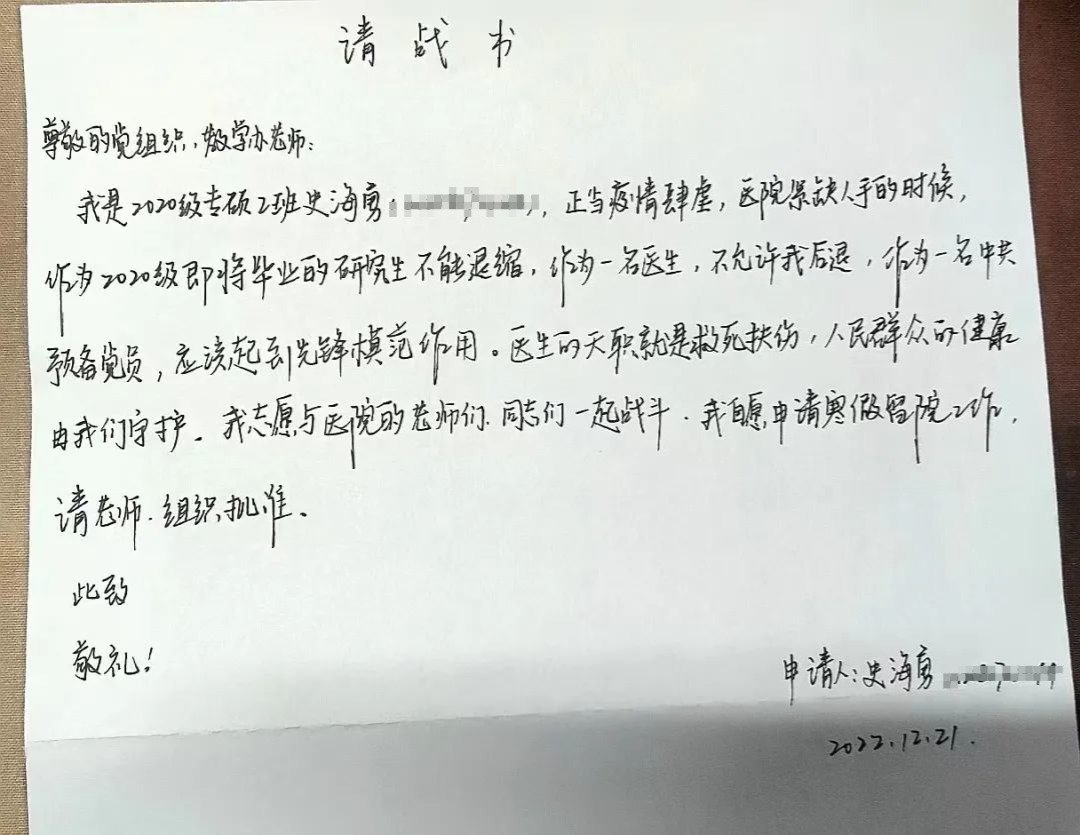 请战书
尊敬的党组织、教学办老师:
我是2020级专硕2班史海勇,正当疫情肆虐,医院紧缺人手的时候,
作为2020级即将毕业的研究生不能退缩,作为一名医生,不允许我后退,作为一名中共
预备党员,应该起到先锋模范作用。医生的天职就是救死扶伤,人民群众的健康
由我们守护。我志愿与医院的老师们、同志们一起战斗、我自愿申请寒假留院工作,
请老师、组织批准。
此致
敬礼!
申请人:史海勇
2022.12.21.